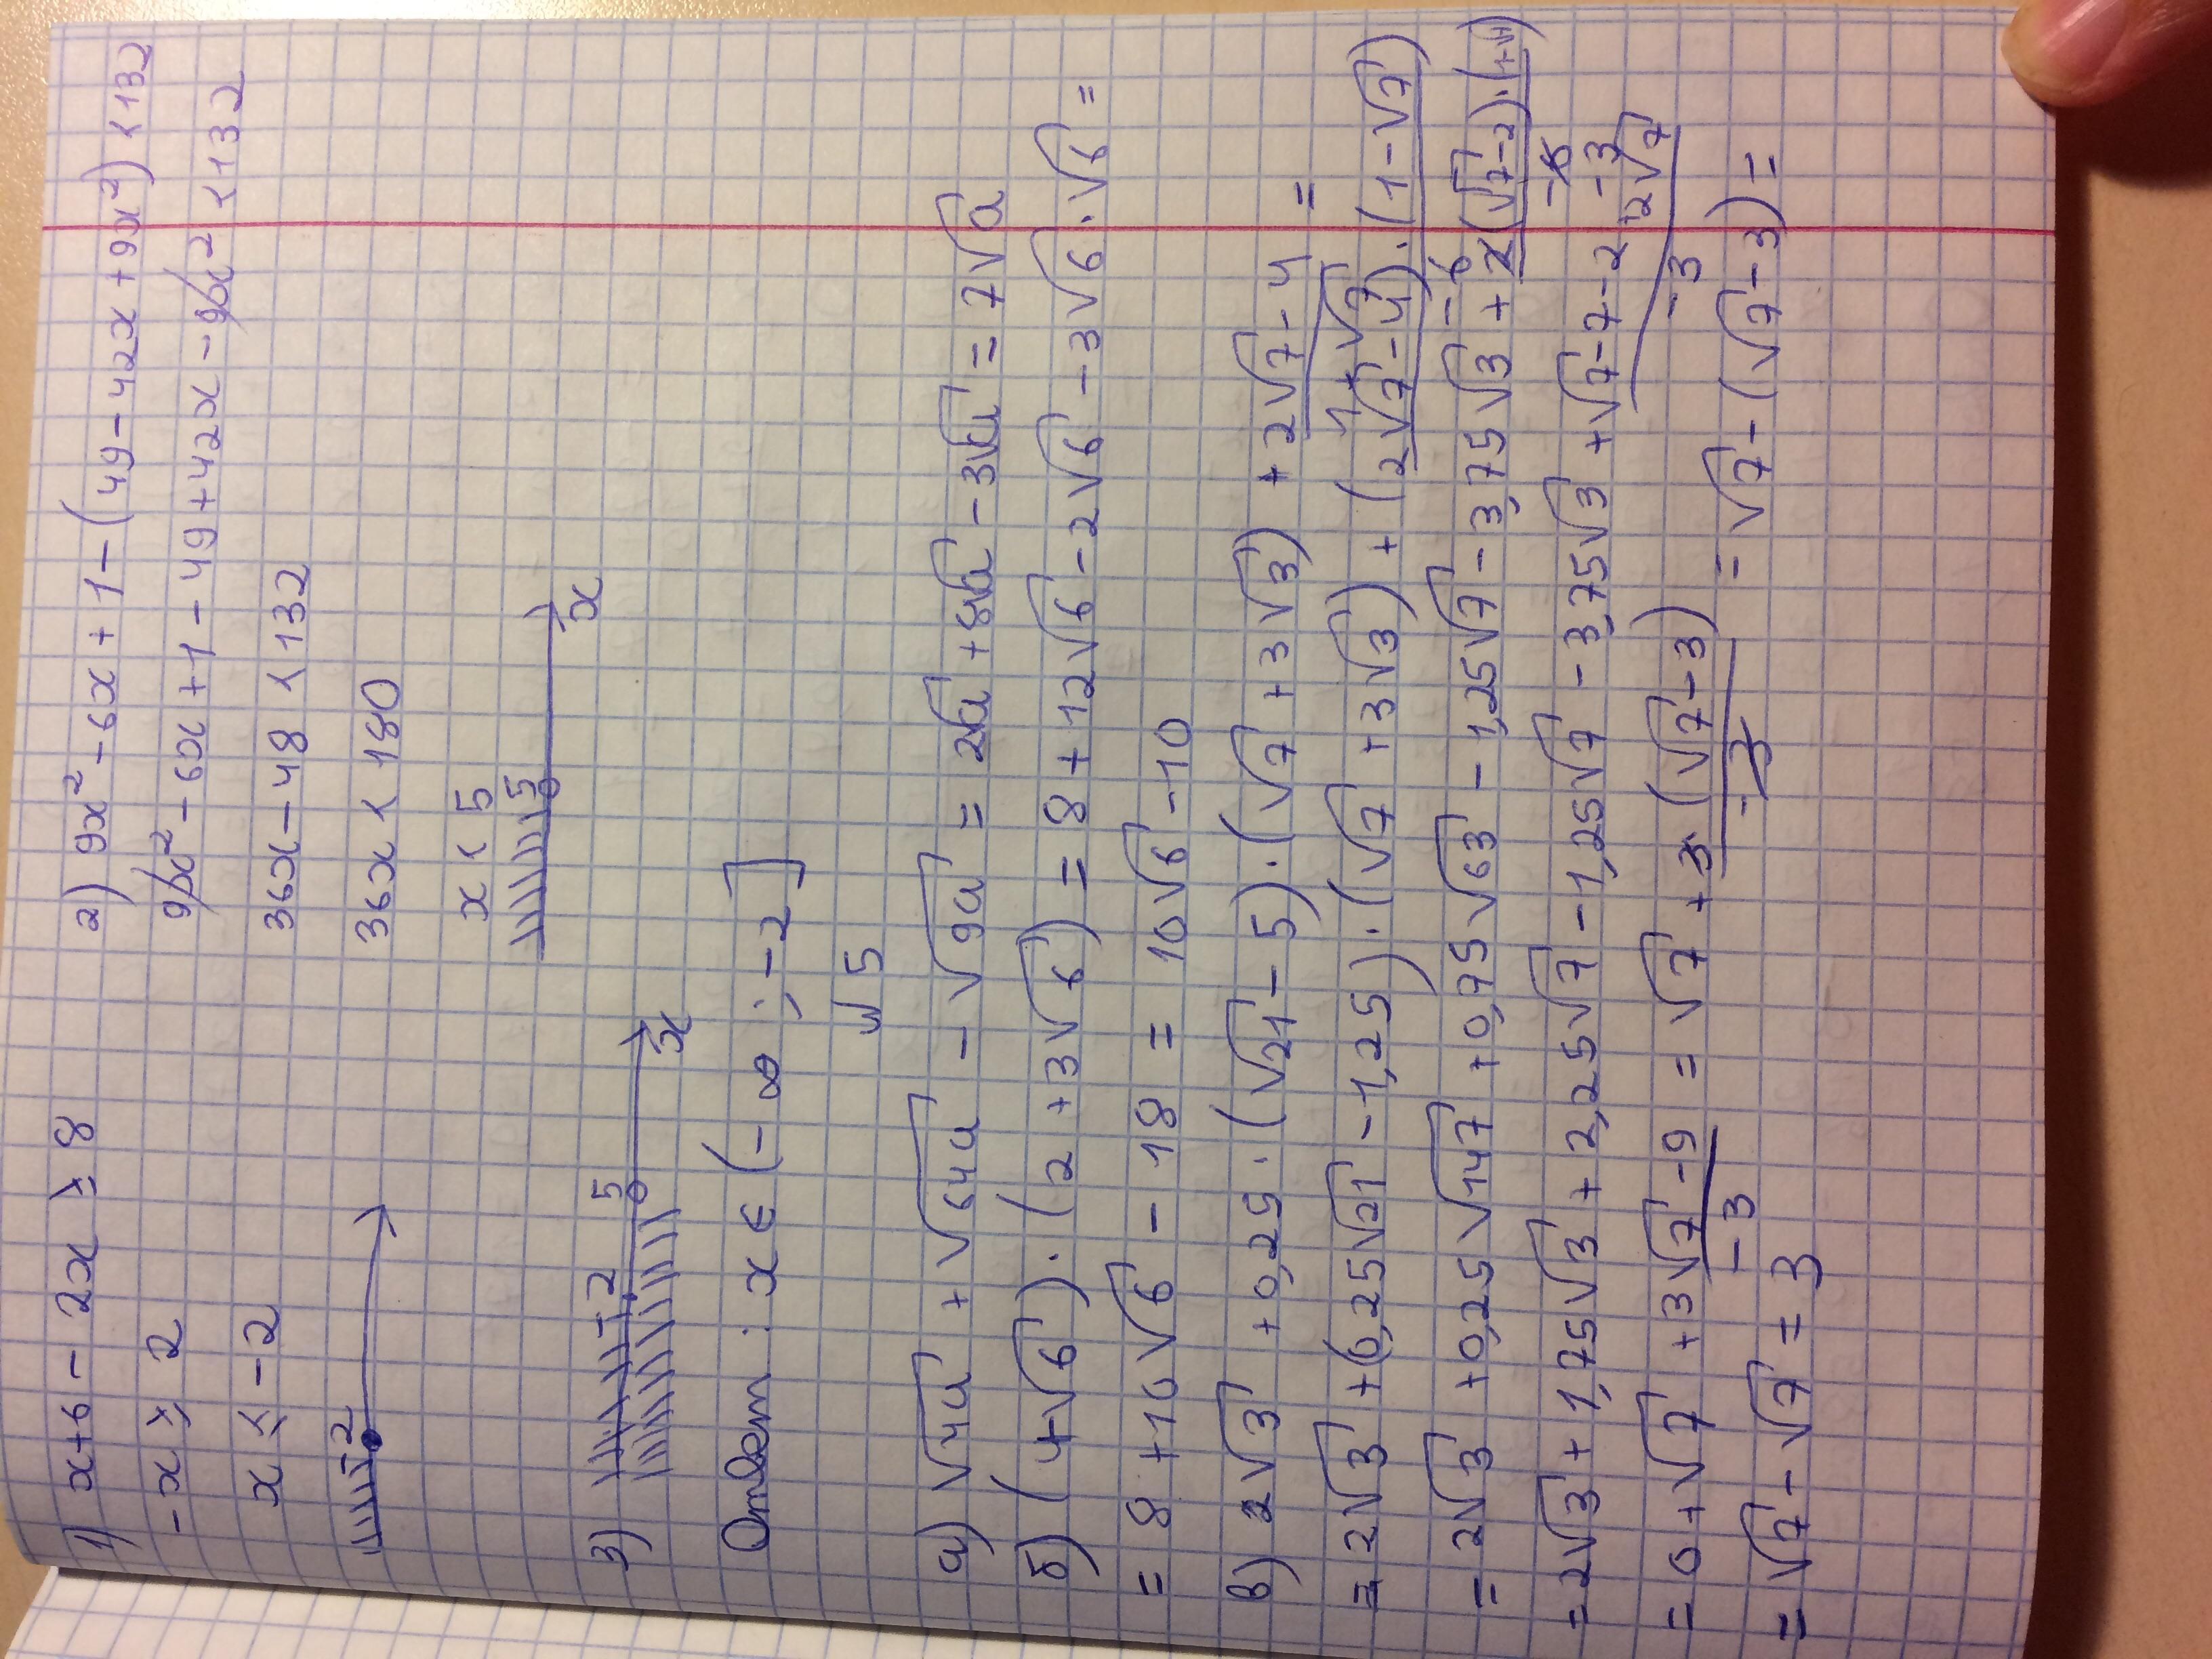 1) x+6 - 2x ≥ 8
-x ≥ 2
x ≤ -2
-2
2) 9x² - 6x + 1 - (49 - 42x + 9x²) < 132
9x² - 6x + 1 - 49 + 42x - 9x² < 132
36x - 48 < 132
36x < 180
x < 5
5
x
3) -2 5
x
Ответ: x ∈ (-∞ ; -2]
№5
а) √4a + √64a - √9a = 2√a + 8√a - 3√a = 7√a
б) (4-√6)·(2+3√6) = 8 + 12√6 - 2√6 - 3√6·√6 =
= 8 + 10√6 - 18 = 10√6 - 10
в) 2√3 + 0,25·(√21 - 5)·(√7 + 3√3) + (2√7 - 4)/(1+√7) =
= 2√3 + (0,25√21 - 1,25)·(√7 + 3√3) + (2√7 - 4)·(1-√7)/-6
= 2√3 + 0,25√147 + 0,75√63 - 1,25√7 - 3,75√3 + 2(√7-2)·(1-√7)/-6
= 2√3 + 1,75√3 + 2,25√7 - 1,25√7 - 3,75√3 + (√7 - 7 - 2 + 2√7)/-3
= 0 + √7 + (3√7 - 9)/-3 = √7 + 3(√7 - 3)/-3 = √7 - (√7 - 3) =
= √7 - √7 = 3